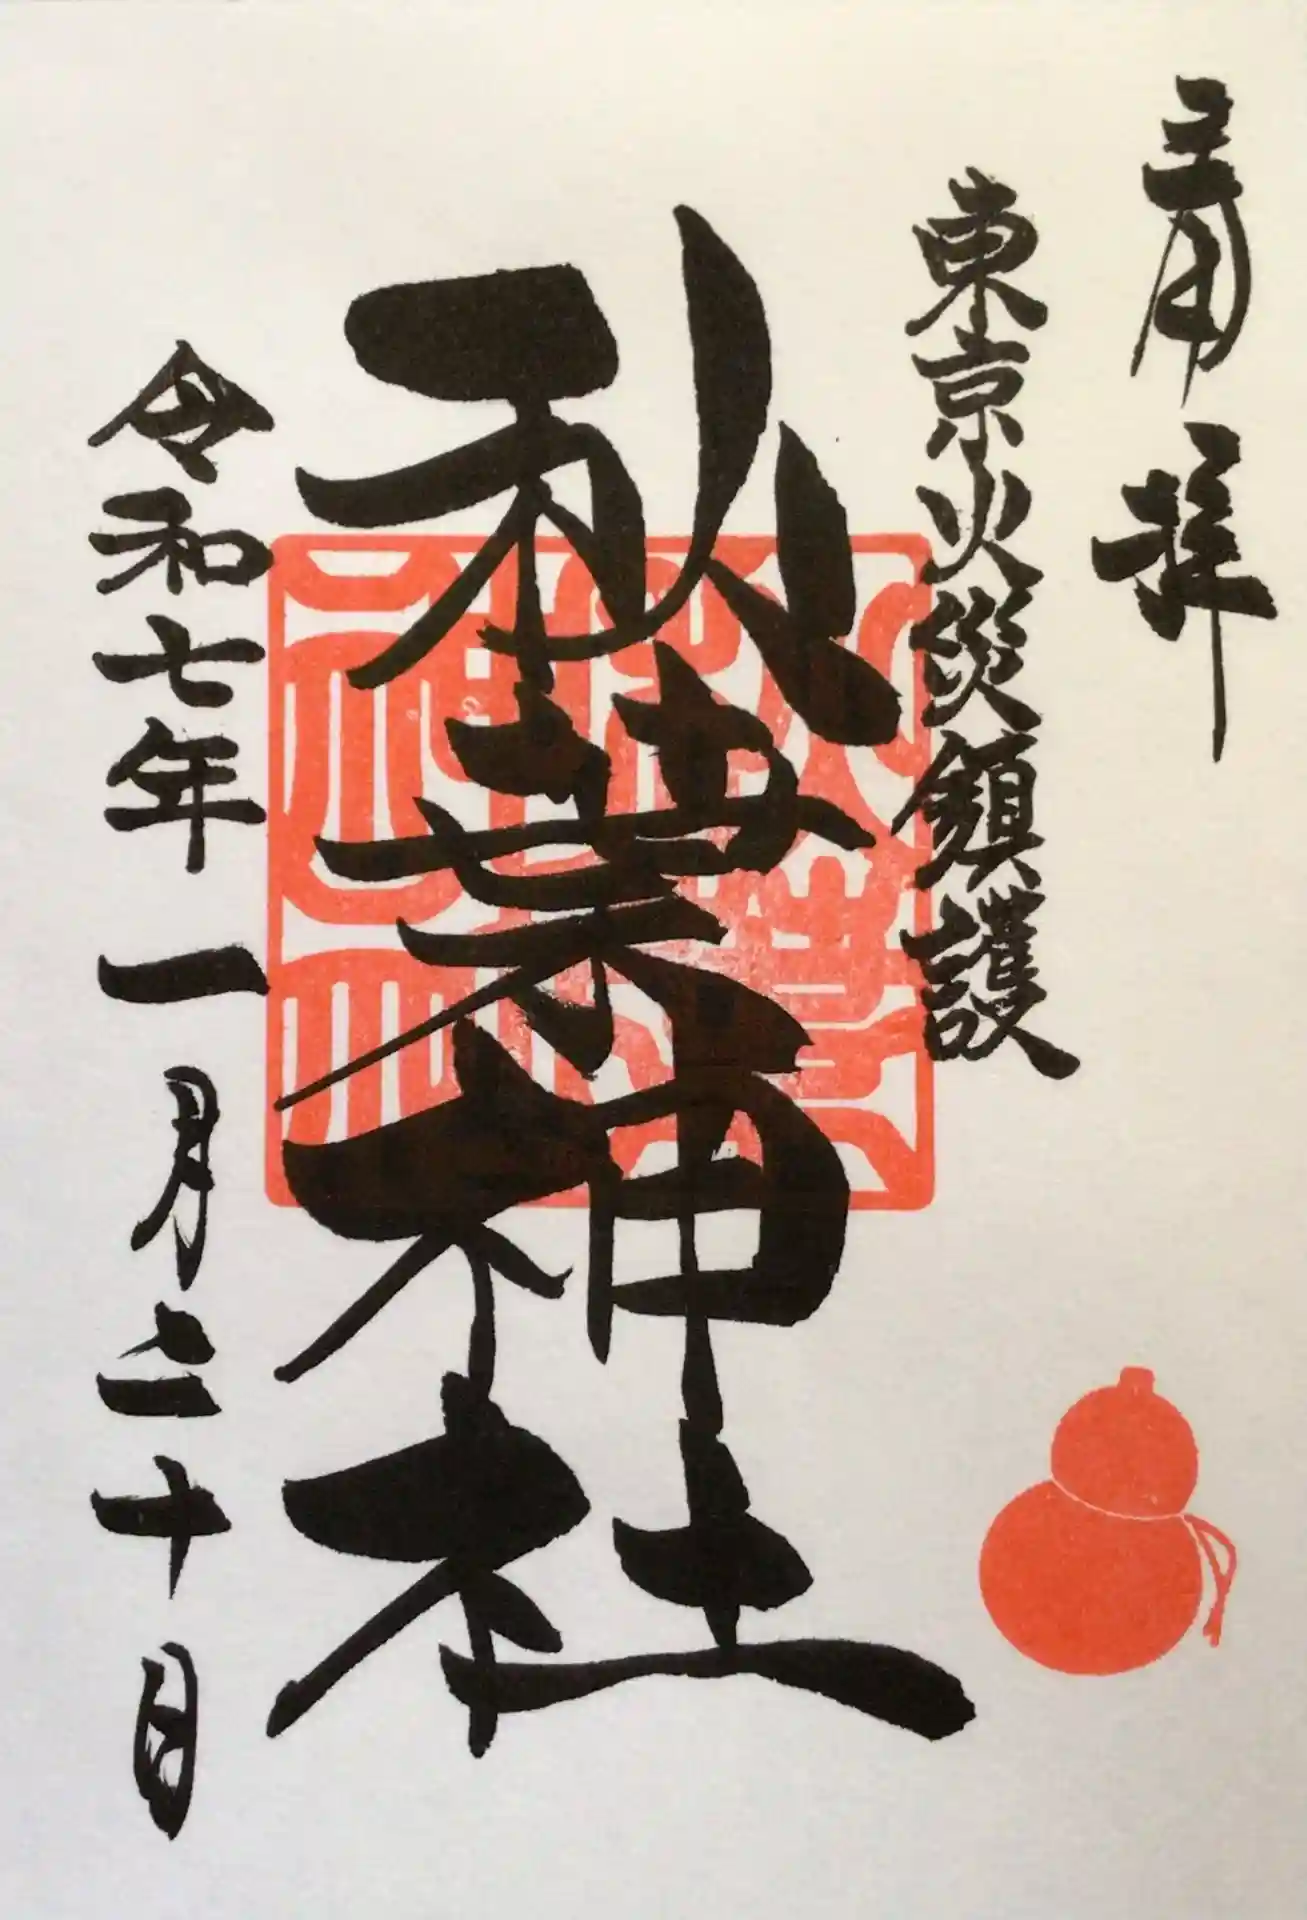 奉拝
東京火災鎮護
秋葉神社
令和七年一月二十日